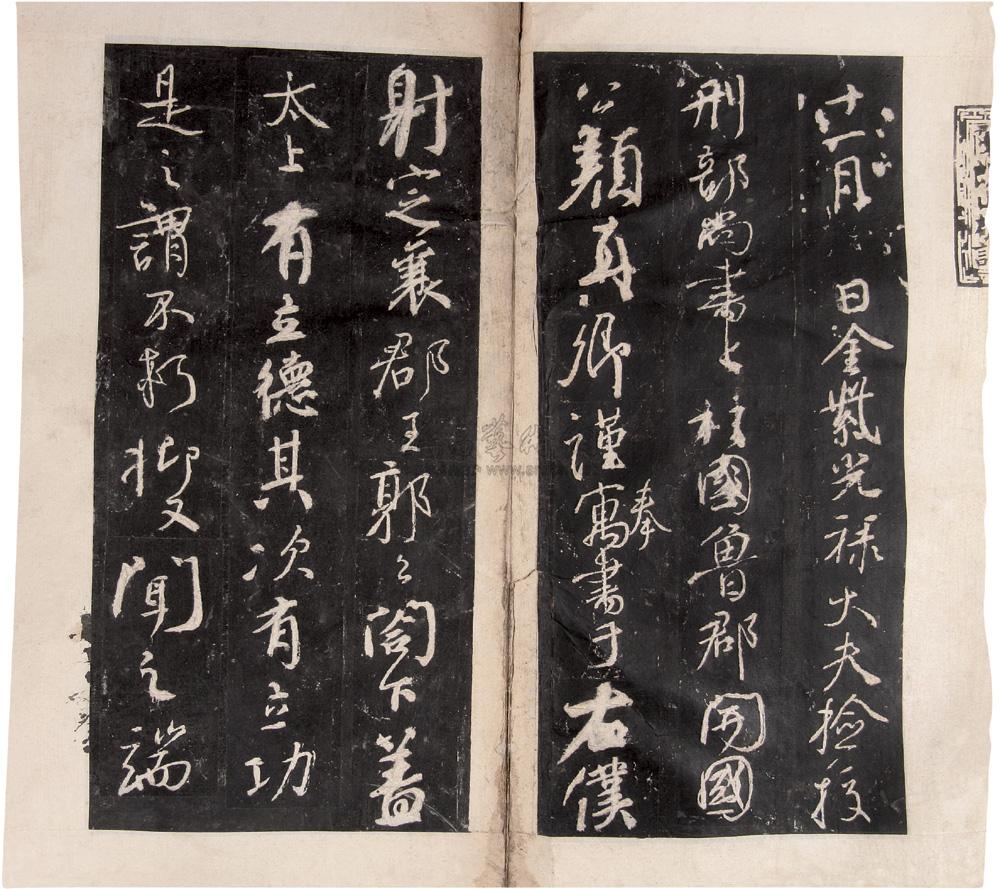 十一月 日金紫光禄大夫檢校
刑部尚書上柱國魯郡開國
公顏真卿謹奉寓書于右僕
射定襄郡王郭公閤下蓋
太上有立德其次有立功
是之謂不朽抑又聞之端